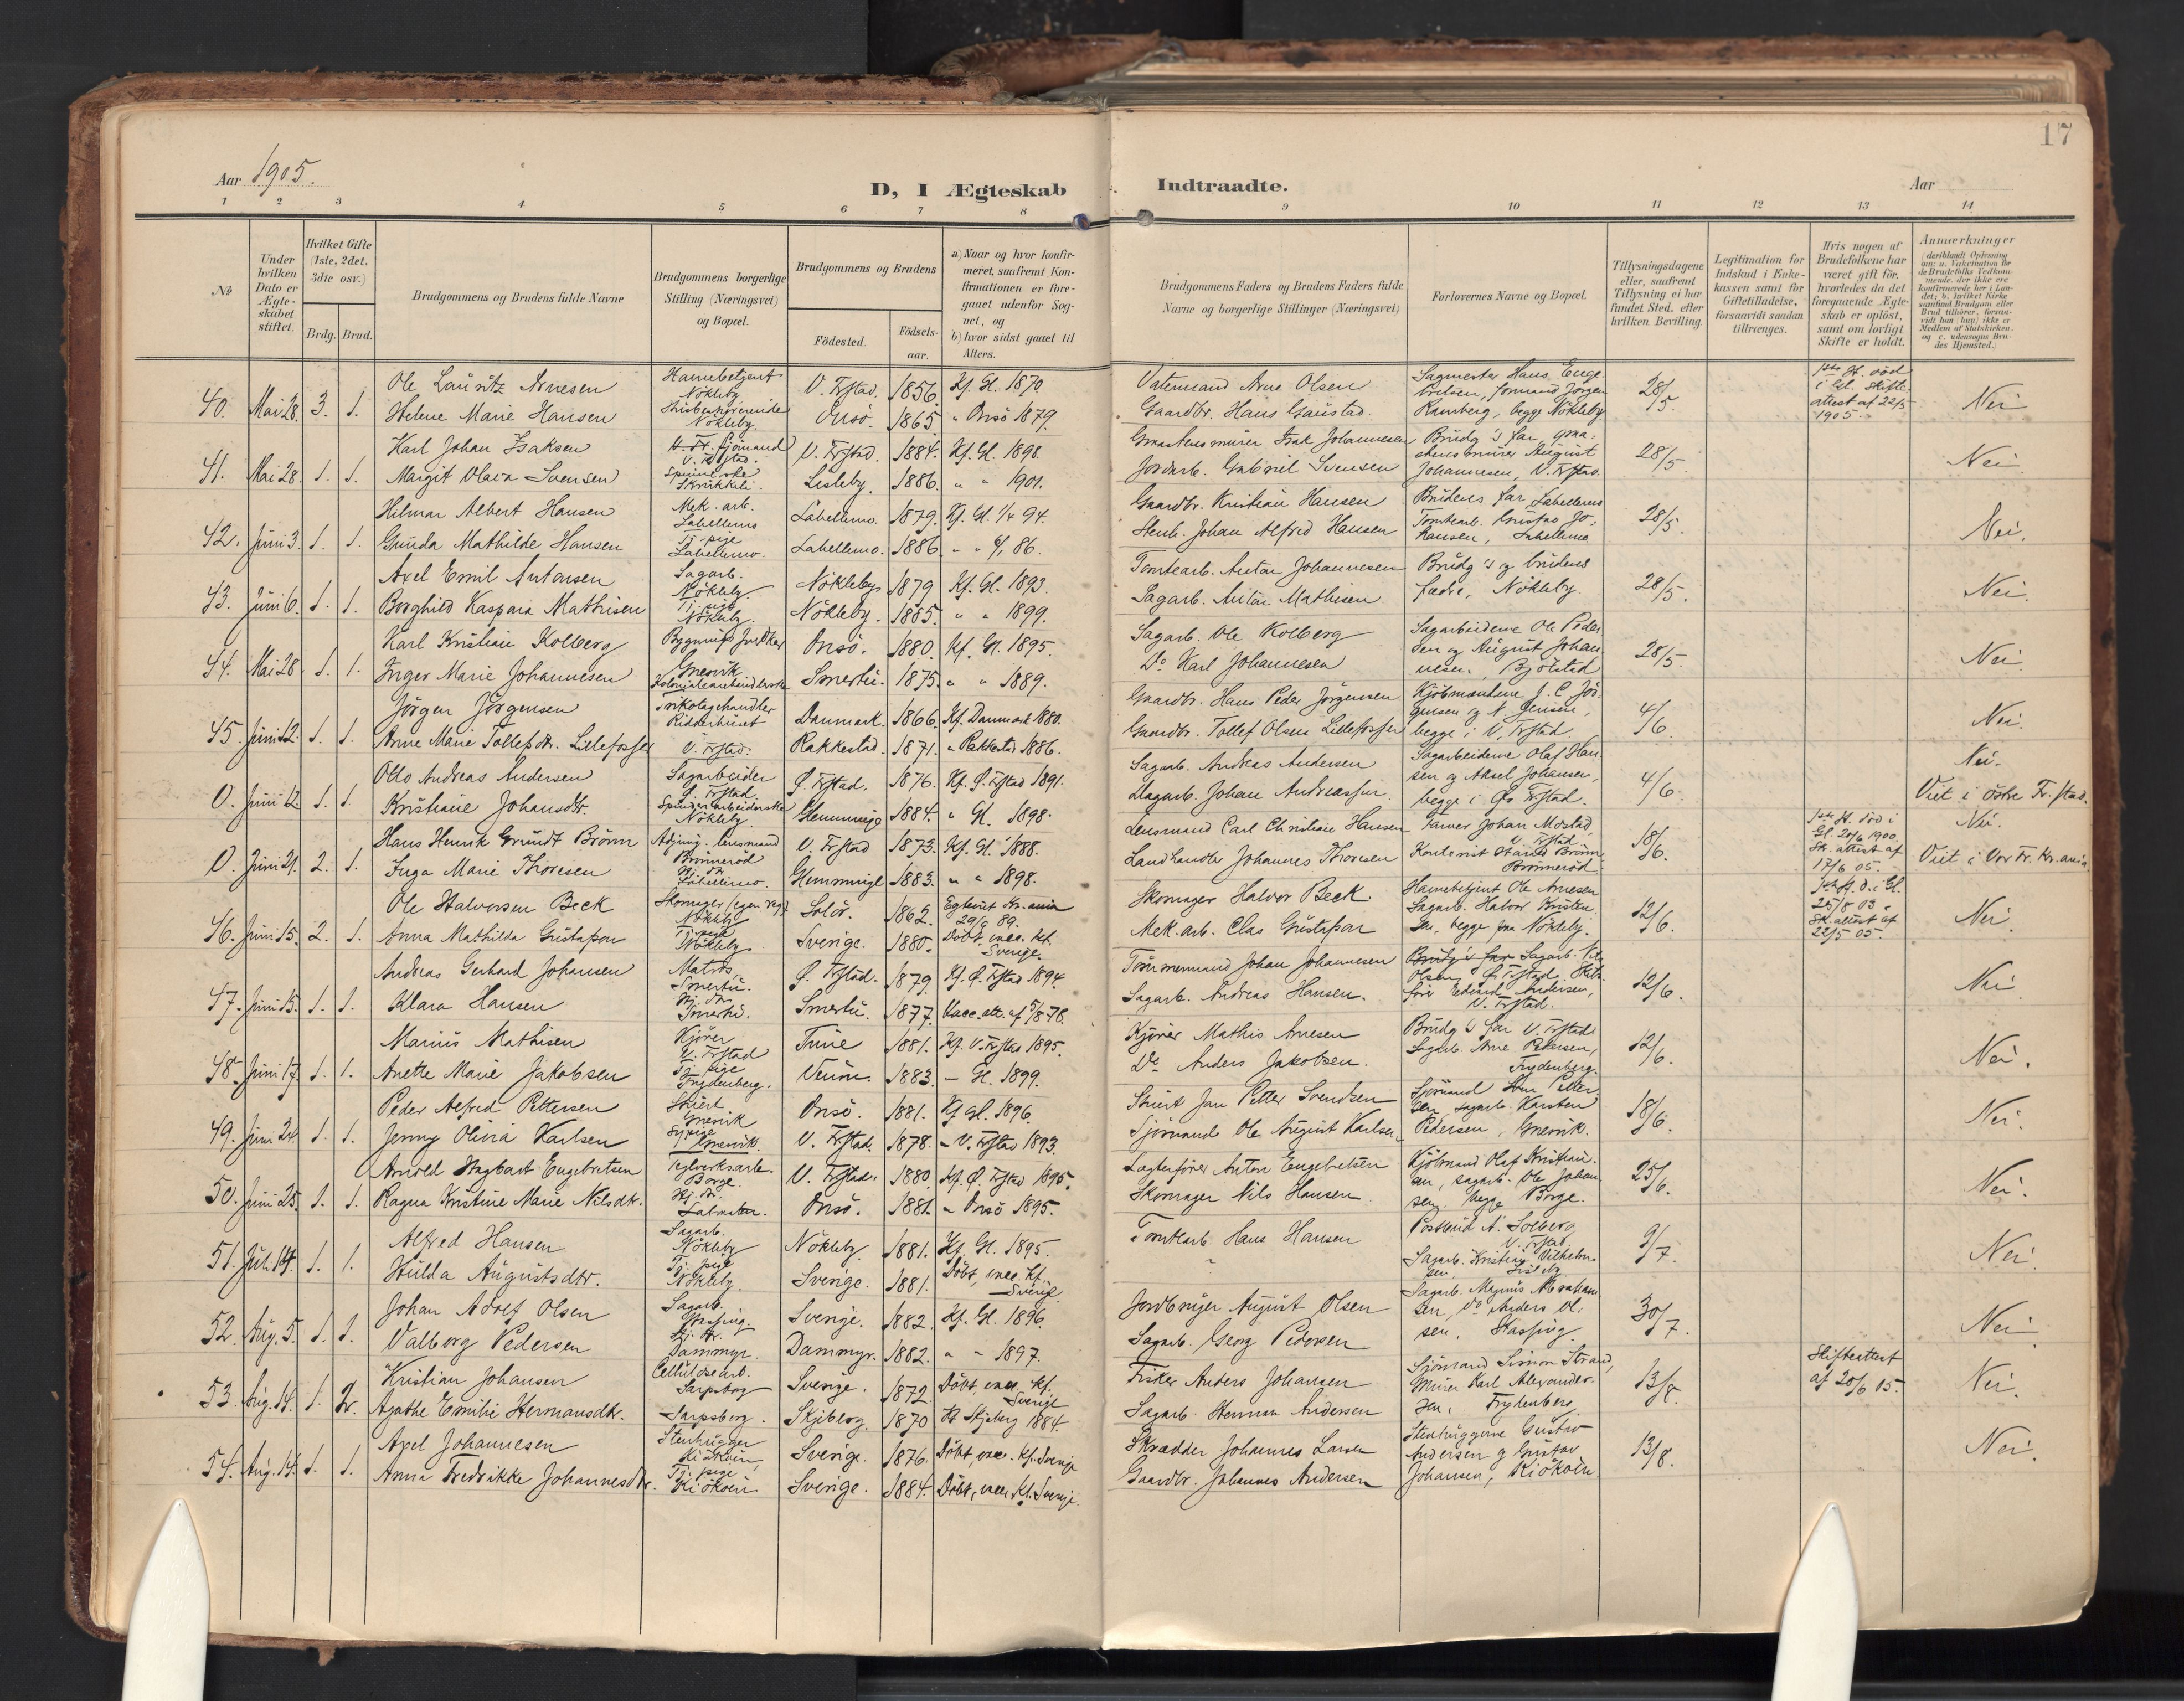 17
Aar 1905.
D, I Ægteskab Indtraadte.
Aar
1 2 3 4 5 6 7 8 9 10 11 12 13 14
№
Under hvilken Dato er Ægteskabet stiftet.
Hvilket Gifte (1ste, 2det, 3die osv.)
Brdg. Brud.
Brudgommens og Brudens fulde Navne
Brudgommens borgerlige Stilling (Næringsvei) og Bopæl.
Brudgommens og Brudens
Födested. Födselsaar.
a) Naar og hvor konfirmeret, saafremt Konfirmationen er foregaaet udenfor Sognet, og
b) hvor sidst gaaet til Alters.
Brudgommens Faders og Brudens Faders fulde Navne og borgerlige Stillinger (Næringsvei)
Forlovernes Navne og Bopæl.
Tillysningsdagene eller, saafremt Tillysning ei har fundet Sted, efter hvilken Bevilling.
Legitimation for Indskud i Enkekassen samt for Giftetilladelse, forsaavidt saadan tiltrænges.
Hvis nogen af Brudefolkene har været gift för, hvorledes da det foregaaende Ægteskab er oplöst, samt om lovligt Skifte er holdt.
Anmerkninger
40. Mai 28. 3. 1.
Ole Lauritz Arnesen Havnebetjent Nökleby V. Frstad. 1856. Kf. Gl. 1870 Vatenmand Arne Olsen
Helene Marie Hansen Nökleby. Onsö. 1865 " Onsö 1879. Gaardbr. Hans Gaustad
Sagmester Hans Engebretsen, formand Jörgen Ramberg, begge Nökleby
28/5. 1ste H. död i Gl. Skifteattest af 22/5 1905 Nei
41. Mai 28. 1. 1.
Karl Johan Isaksen Sjömand V. Frstad. V. Frstad. 1884. Kf. Gl. 1898. Graastensmürer Isak Johannesen
Margit Olava Svensen Spinderske Skrükkeli. Lisleby. 1886. " " 1901. Jordarb. Gabriel Svensen
Brüdg's far, graastensmürer August Johannesen, V. Frstad.
28/5. Nei.
42. Juni 3. 1. 1.
Hilmar Albert Hansen Mek. arb. Labellemo Labellemo. 1879. Kf. Gl. 1/4 94. Gaardbr. Kristian Hansen
Gunda Mathilde Hansen Tj. pige Labellemo. Labellemo. 1886. Stenh. Johan Alfred Hansen
Brüdens far, Labellemo Tomtearb. Gustav Johansen, Labellemo
28/5. Nei.
43. Juni 6. 1. 1.
Axel Emil Antonsen Sagarb. Nökleby Nökleby 1879 Kf. Gl. 1893. Tomtearb. Anton Johannesen
Borghild Kaspara Mathisen Tj. pige Nökleby. Nökleby. 1885. " " 1899. Sagarb. Anton Mathisen
Brüdg's og brüdens fædre, Nökleby.
28/5. Nei.
44. Mai 28. 1. 1.
Karl Kristian Kolberg Onsö. 1880. Kf. Gl. 1895. Sagarb. Ole Kolberg
Inger Marie Johannesen Gressvik Smertu. 1875. " " 1889. Do Karl Johannesen
Sagarbeiderne Ole Pedersen og August Johannesen, Bjölstad
28/5. Nei.
45. Juni 12. 1. 1.
Jörgen Jörgensen Trikotagehandler Ridderhuset Danmark. 1866. Kf. Danmark 1880. Gaardbr. Hans Peder Jörgensen
Anne Marie Tollefsdtr. Lillefosse V. Frstad. Rakkestad. 1871. " Rakkestad 1886. Gaardbr. Tollef Olsen Lillefosse
Kjöbmændene J. C. Jörgensen og N. Jensen, begge i V. Frstad
4/6. Nei.
0. Juni 12. 1. 1.
Otto Andreas Andersen Sagarbeider Ö. Frstad. Ö. Frstad. 1876. Kf. Ö. Frstad 1891. Sagarb. Andreas Andersen
Kristiane Johansdtr. Nökleby. Glemminge 1884. " Gl. 1898. Dagarb. Johan Andreassen
Sagarbeiderne Olaf Hansen og Aksel Johansen, begge i Ös Frstad.
4/6. Nei. Viet i östre Fr.stad.
0. Juni 21. 2. 1.
Hans Henrik Gründt Brönn Adjung. lensmand Brönneröd V. Frstad 1873. Kf. Gl. 1888. Lensmand Carl Christian Hansen
Inga Marie Thoresen Labellemo. Glemminge 1883. " " 1898. Landhandler Johannes Thoresen
Farver Johan Mostad, V. Frstad Kontorist Brönn Brönneröd
18/6. 1ste H. död i Gl. 20/6 1900. Sk. attest af 17/6 05. Nei. Viet i Vor Fr. Kr.ania.
46. Juni 15. 2. 1.
Ole Halvorsen Beck Skomager (egen regn.) Nökleby Solör. 1862. Kr.ania 29/9 89. Skomager Halvor Beck.
Anna Mathilda Gustafson Tj. pige Nökleby Sverige. 1880. Döbt, vacc. kf. Sverige. Mek. arb. Clas Gustafson
Havnebetjent Ole Arnesen Sagarb. Halvor Kristensen, begge fra Nökleby.
12/6. 1ste H. d. i Gl. 25/8 03. Sk. attest af 22/5 05. Nei.
47. Juni 15. 1. 1.
Andreas Gerhard Johansen Matros Smertu. Ö. Frstad. 1879. Kf. Ö. Frstad 1894. Tömmermand Johan Johannesen
Klara Hansen Hj. dtr. Smertu. Smertu. 1877. Vacc. att. af 5/8 78. Sagarb. Andreas Hansen.
Brüdg's far Sagarb. Nils Olsen, Ö. Frstad. Edvard Andersen, V. Frstad.
12/6. Nei
48. Juni 17. 1. 1.
Marius Mathisen Kjörer V. Frstad Tune 1881. Kf. V. Frstad 1895. Kjörer Mathis Arnesen
Anette Marie Jakobsen Tj. pige Frydenberg. 1883. — Gl. 1899. Do Anders Jakobsen.
Brüdg's far V. Frstad Sagarb. Arne Pedersen, Frydenberg.
12/6. Nei.
49. Juni 24. 1. 1.
Peder Alfred Pettersen Gresvik Onsö. 1881. Kf Gl. 1896. Jan Petter Svendsen
Jenny Olivia Karlsen Gresvik. V. Frstad. 1878. " V. Frstad 1893. Sjömand Ole August Karlsen
Sjömand Pettersen, sagarb. Karsten Pedersen, Gresvik.
18/6. Nei.
50. Juni 25. 1. 1.
Arnold Hagbart Engebretsen Teglverksarb. Borge. V. Frstad. 1880. Kf. Ö. Frstad 1895. Lægterförer Anton Engebretsen
Ragna Kristine Marie Nilsdtr. Hj. dtr. Onsö. 1881. " Onsö 1895. Skomager Nils Hansen.
Kjöbmand Olaf Kristiansen, sagarb. Ole Johansen, begge Borge.
25/6. Nei.
51. Juli 14. 1. 1.
Alfred Hansen Sagarb. Nökleby Nökleby. 1881. Kf. Gl. 1895. Tomtearb. Hans Hansen
Hilda Augustsdtr. Tj. pige Nökleby Sverige. 1881. Döbt, vacc. kf. Sverige "
Postbud A. Solberg V. Frstad. Sagarb. Kristian Vilhelmsen, Lisleby
9/7. Nei.
52. Aug. 5. 1. 1.
Johan Adolf Olsen Sagarb. Sverige. 1882. Kf. Gl. 1896. Jordbruger August Olsen
Valborg Pedersen Hj. dtr. Dammyr. Dammyr. 1882. " " 1897. Sagarb. Georg Pedersen
Sagarb. Magnus Abrahamsen, do Anders Olsen.
30/7. Nei.
53. Aug. 14. 1. 2.
Kristian Johansen Cellulosearb. Sarpsborg Sverige. 1872. Döbt, vacc. kf. Sverige Fisker Anders Johansen
Agathe Emilie Hermansdtr. Sarpsborg. Skjeberg. 1870 Kf Skjeberg 1884. Sagarb. Herman Andersen
Sjömand Simon Strand, Mürer Karl Alexandersen, Frydenberg
13/8. Skifteattest af 20/6 05. Nei.
54. Aug. 14. 1. 1.
Axel Johannesen Stenhugger Kiököen Sverige. 1876. Döbt, vacc. kf. Sverige Skrædder Johannes Larsen
Anna Fredrikke Johannesdtr. Tj. pige Kiököen Sverige. 1884. Döbt, vacc. kf. Sverige. Gaardbr. Johannes Andersen
Stenhuggerne Gustav Andersen og Gustav Johansen, Kiököen.
13/8. Nei.